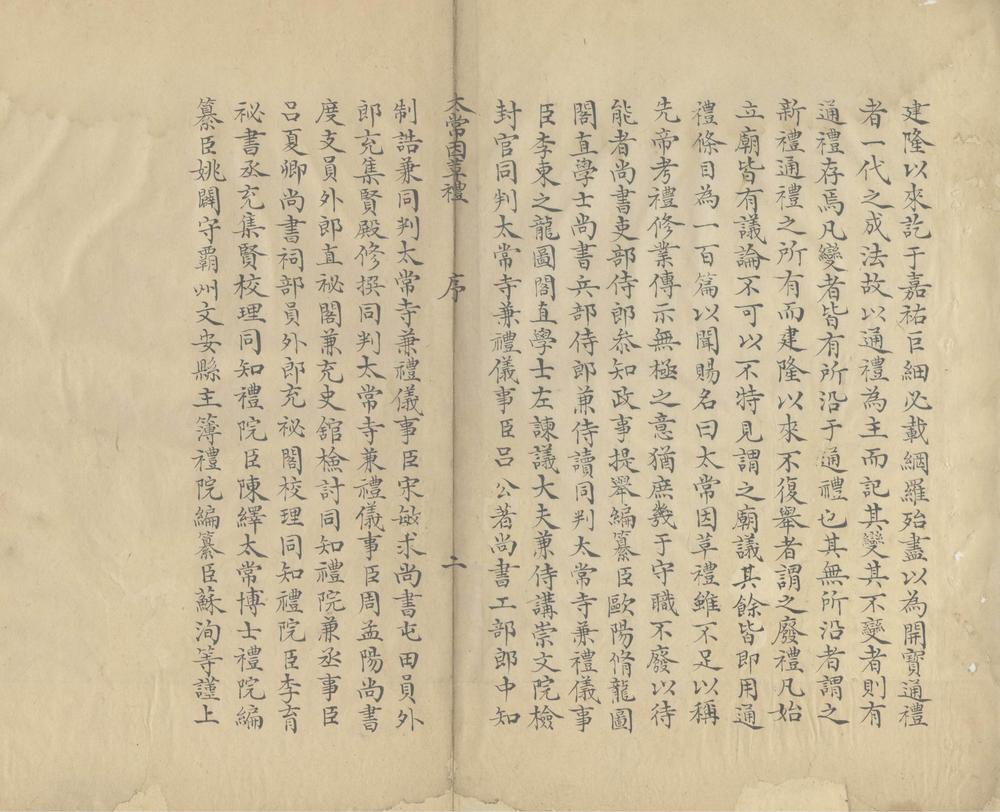 建隆以來訖于嘉祐巨細必載網羅殆盡以為開寶通禮
者一代之成法故以通禮為主而記其變其不變者則有
通禮存焉凡變者皆有所沿于通禮也其無所沿者謂之
新禮通禮之所有而建隆以來不復舉者謂之廢禮凡始
立廟皆有議論不可以不特見謂之廟議其餘皆即用通
禮條目為一百篇以聞賜名曰太常因草禮雖不足以稱
先帝考禮修業傳示無極之意猶庶幾于守職不廢以待
能者尚書吏部侍郎叅知政事提舉編纂臣歐陽脩龍圖
閣直學士尚書兵部侍郎兼侍讀同判太常寺兼禮儀事
臣李東之龍圖閣直學士左諫議大夫兼侍講崇文院檢
封官同判太常寺兼禮儀事臣呂公著尚書工部郎中知
太常因草禮 序 二
制誥兼同判太常寺兼禮儀事臣宋敏求尚書屯田員外
郎充集賢殿修撰同判太常寺兼禮儀事臣周孟陽尚書
度支員外郎直祕閣兼充史舘檢討同知禮院兼丞事臣
呂夏卿尚書祠部員外郎充祕閣校理同知禮院臣李育
祕書丞充集賢校理同知禮院臣陳繹太常博士禮院編
纂臣姚闢守霸州文安縣主簿禮院編纂臣蘇洵等謹上